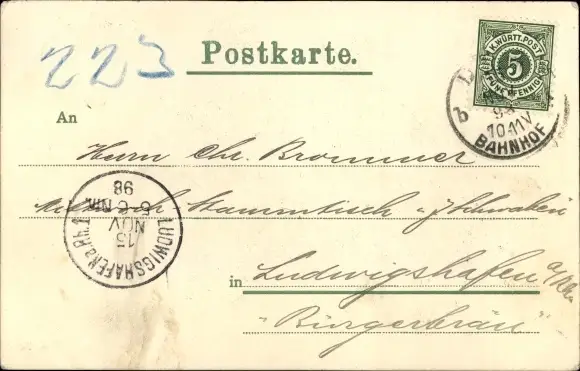 223
Postkarte.
K. WÜRTT. POST
5
FÜNF PFENNIG
98
10-11 V
BAHNHOF
An
Herrn Chr. Brommer
Stammtisch
LUDWIGSHAFEN a. Rh. 1
15
NOV
5-6 Nm.
98
in Ludwigshafen a/Rh.
"Bürgerbräu"